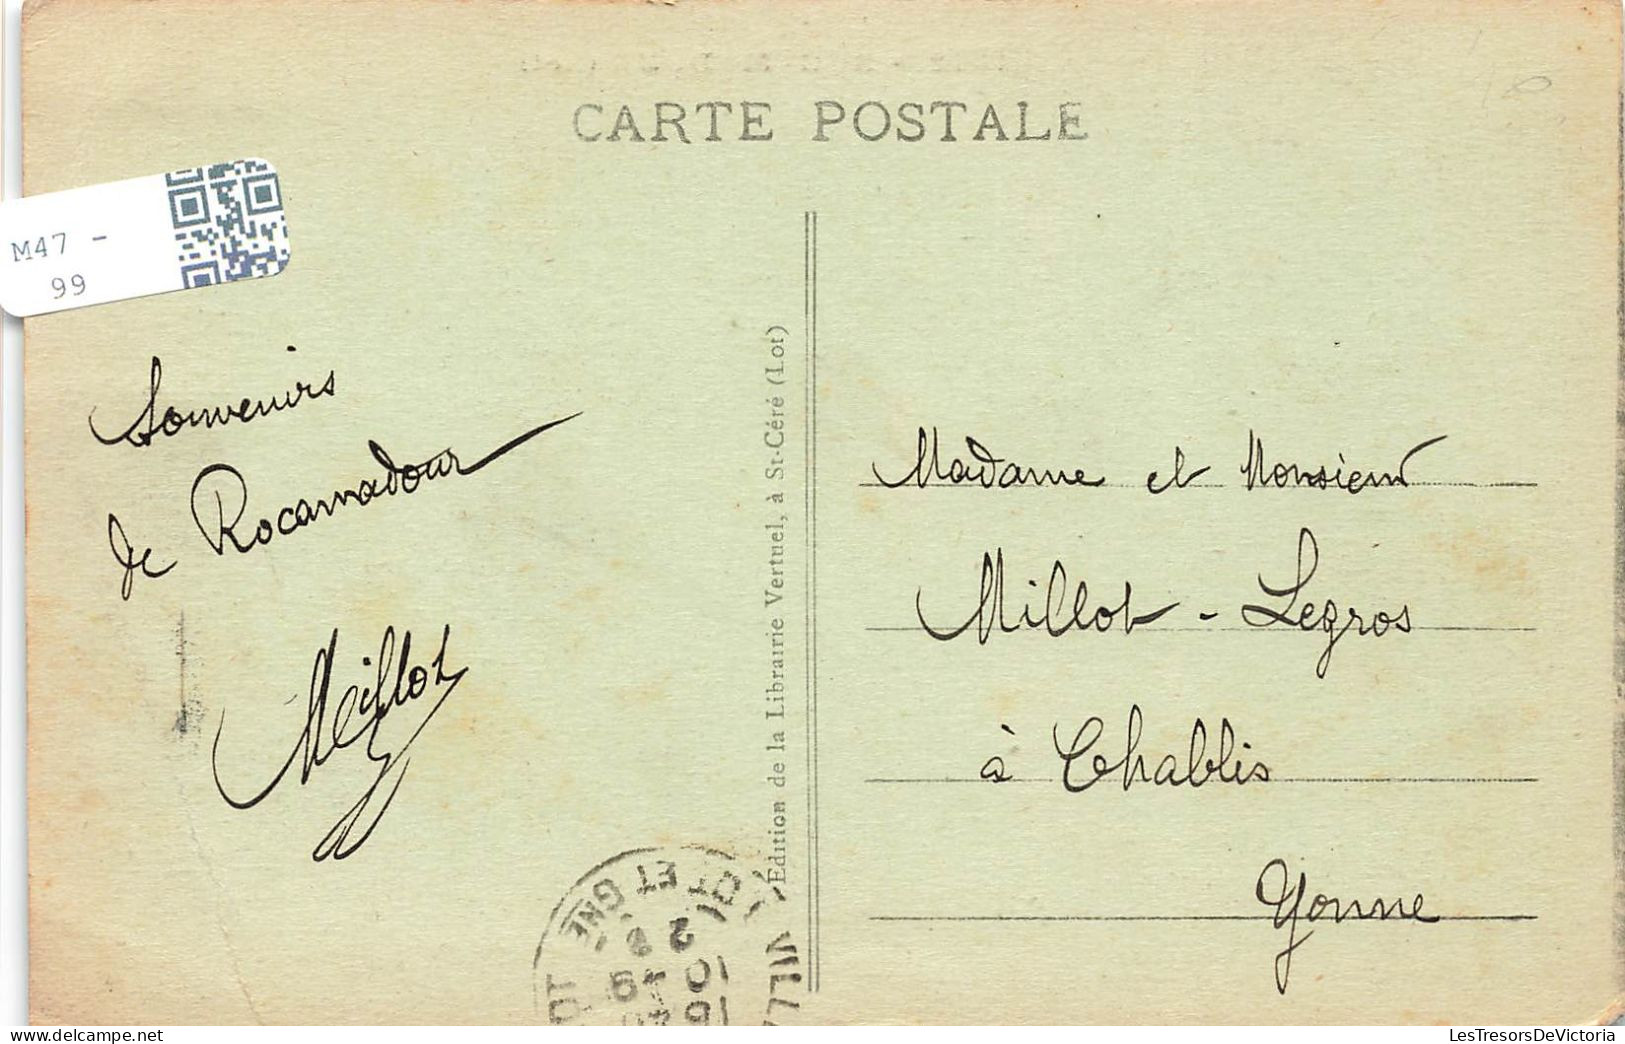 CARTE POSTALE
M47 -
99
Souvenirs
de Rocamadour
Millot
Edition de la Librairie Vertuel, à St-Céré (Lot)
Madame et Monsieur
Millot - Legros
à Chablis
Yonne
LOT ET GNE
LesTresorsDeVictoria